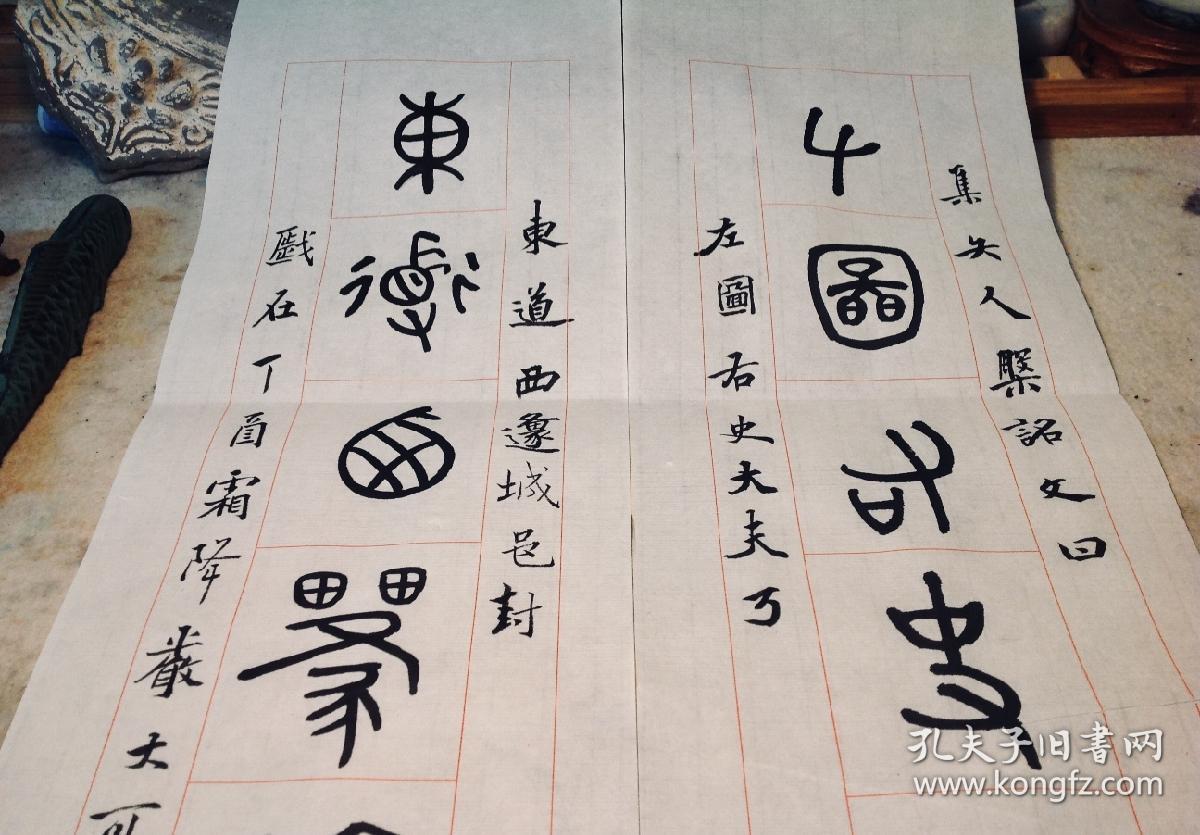 集夨人槃詺文曰
左圖右史
左圖右史大夫丂
東道西邍城邑封
東道西邍
歲在丁酉霜降嚴大可
孔夫子旧书网
www.kongfz.com